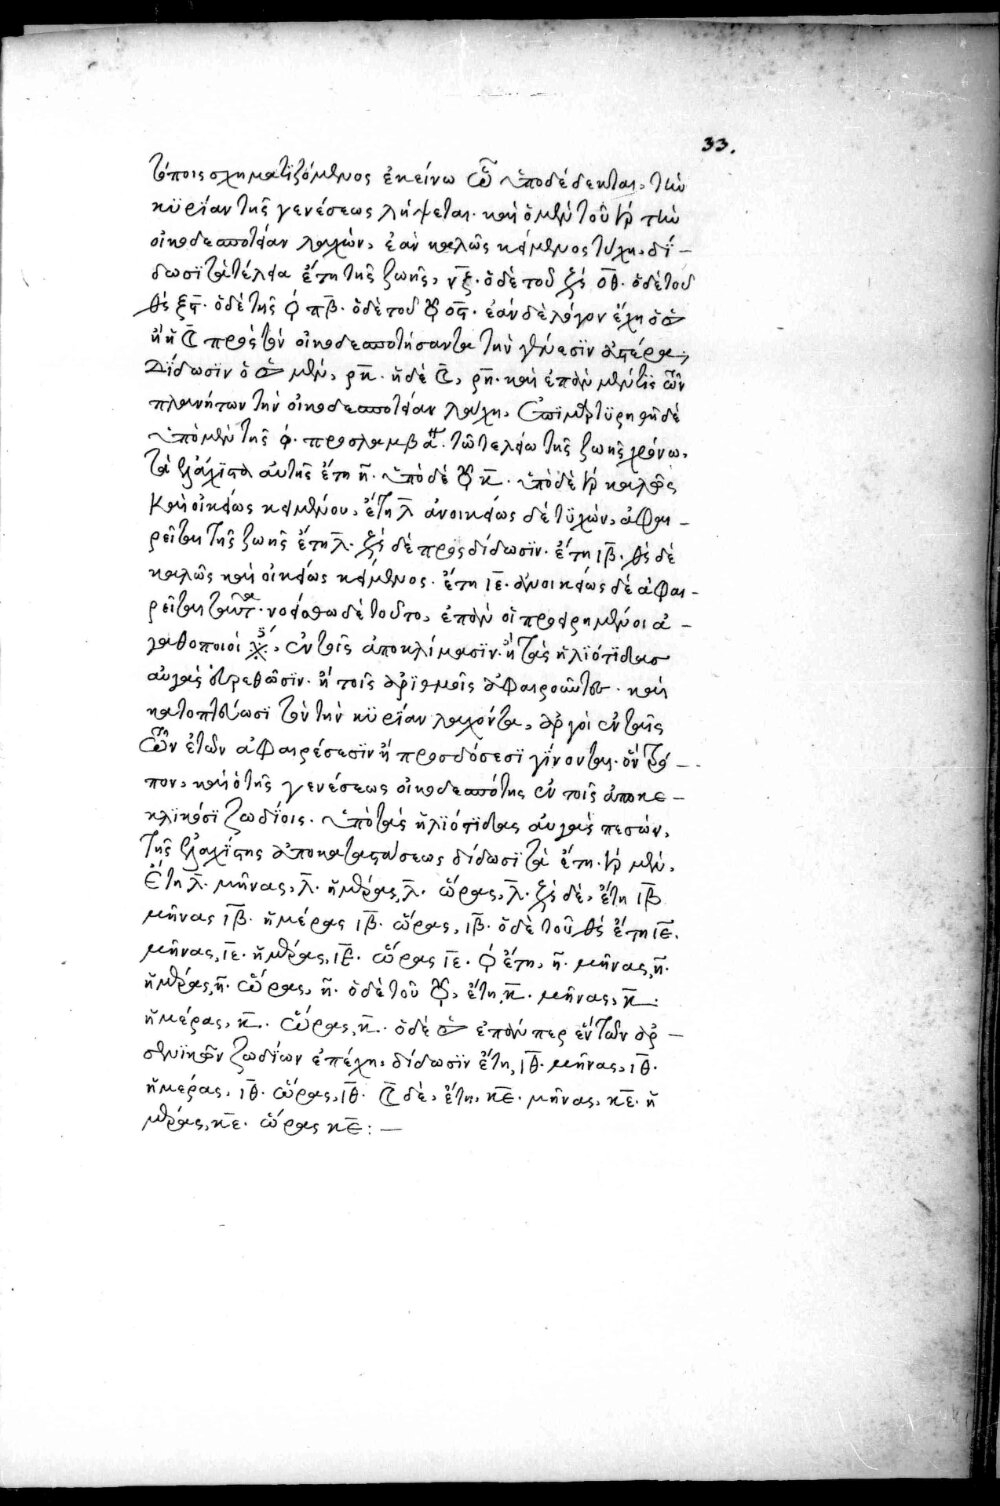 33.
τόποις σχηματιζόμενος ἐκείνω ὧ ὑποδέδεκται, τὴν
κυρίαν τῆς γενέσεως λήψεται. καὶ ὁ μὲν τοῦ ♄ τὴν
οἰκοδεσποτείαν λαχὼν, ἐὰν καλῶς κείμενος τύχη, δί-
δωσϊ τὰ τέλεια ἔτη τῆς ζωῆς, ν̅ζ̅. ὁ δὲ τοῦ ♃ ο̅θ̅. ὁ δὲ τοῦ
♂ ξ̅ς̅. ὁ δὲ τῆς ♀ π̅β̅. ὁ δὲ τοῦ ☿ ο̅ς̅. ἐὰν δὲ λόγον ἔχη ὁ ☉
ἢ ἡ ☾ πρὸς τὸν οἰκοδεσποτήσαντα τὴν γένεσϊν ἀστέρα,
δίδωσϊν ὁ ☉ μὲν, ρ̅κ̅. ἡ δὲ ☾, ρ̅η̅. καὶ ἐπὰν μέν τϊς τῶν
πλανήτων τὴν οἰκοδεσποτείαν λάχη, ἐπϊμαρτϋρηθῆ δὲ
ὑπὸ μὲν τῆς ♀. προσλαμβ τῶ τελείω τῆς ζωῆς χρόνω,
τὰ ἐλάχϊστα αὐτῆς ἔτη η̅. ὑπὸ δὲ ☿ κ̅. ὑπὸ δὲ ♄ καλῶς
καὶ οἰκείως κειμένου, ἔτη λ̅ ἀνοικείως δὲ τϋχὼν, ἀφαι-
ρεῖται τῆς ζωῆς ἔτη λ̅. ♃ δὲ προσδίδωσϊν. ἔτη ι̅β̅. ♂ δὲ
καλῶς καὶ οἰκείως κείμενος. ἔτη ι̅ε̅. ἀνοικείως δὲ ἀφαι-
ρεῖται ταῦτα. νοείσθω δὲ τοῦτο, ἐπὰν οἱ προειρημένοι ἀ-
γαθοποιοὶ ἐν τοῖς ἀποκλίμασϊν. ἢ τὰς ἡλϊότϊδας
αὐγὰς εὑρεθῶσϊν. ἢ τοῖς ἀρϊθμοῖς ἀφαιροῦνται. καὶ
κατοπτεύωσϊ τὸν τὴν κϋρίαν λαχόντα, ἀργοὶ ἐν ταῖς
τῶν ἐτῶν ἀφαιρέσεσϊν ἢ προσδόσεσϊ γίνονται. ὃν τρό-
πον, καὶ ὁ τῆς γενέσεως οἰκοδεσπότης ἐν τοῖς ἀποκε-
κλϊκόσϊ ζωδίοις. ὑπὸ τὰς ἡλϊότϊδας αὐγὰς πεσὼν,
τῆς ἐλαχίστης ἀποκαταστάσεως δίδωσϊ τὰ ἔτη. ♄ μὲν,
ἔτη λ̅. μῆνας, λ̅. ἡμέρας, λ̅. ὥρας, λ̅. ♃ δὲ, ἔτη ι̅β̅
μῆνας ι̅β̅. ἡμέρας ι̅β̅. ὥρας, ι̅β̅. ὁ δὲ τοῦ ♂ ἔτη ι̅ε̅.
μῆνας, ι̅ε̅. ἡμέρας, ι̅ε̅. ὥρας ι̅ε̅. ♀ ἔτη, η̅. μῆνας, η̅.
ἡμέρας, η̅. ὥρας, η̅. ὁ δὲ τοῦ ☿, ἔτη, κ̅. μῆνας, κ̅.
ἡμέρας, κ̅. ὥρας, κ̅. ὁ δὲ ☉ ἐπάνπερ ἓν τῶν ἀρ-
σενϊκῶν ζωδίων ἐπέχη, δίδωσϊν ἔτη, ι̅θ̅. μῆνας, ι̅θ̅.
ἡμέρας, ι̅θ̅. ὥρας, ι̅θ̅. ☾ δὲ, ἔτη, κ̅ε̅. μῆνας, κ̅ε̅. ἡ
μέρας, κ̅ε̅. ὥρας κ̅ε̅: —